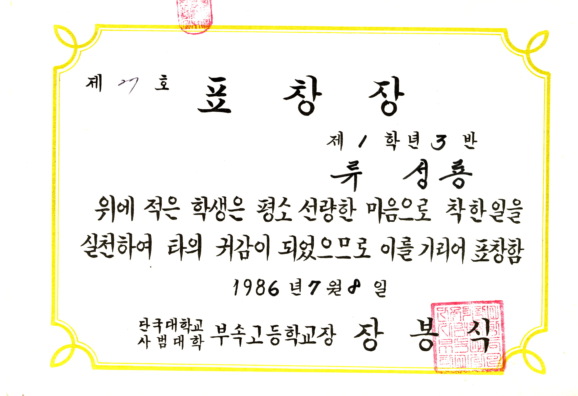 제 27 호
표창장
제 1 학년 3 반
류 성룡
위에 적은 학생은 평소 선량한 마음으로 착한일을
실천하여 타의 귀감이 되었으므로 이를 기리어 표창함
1986년 7월 8일
단국대학교
사범대학 부속고등학교장 장 봉 식